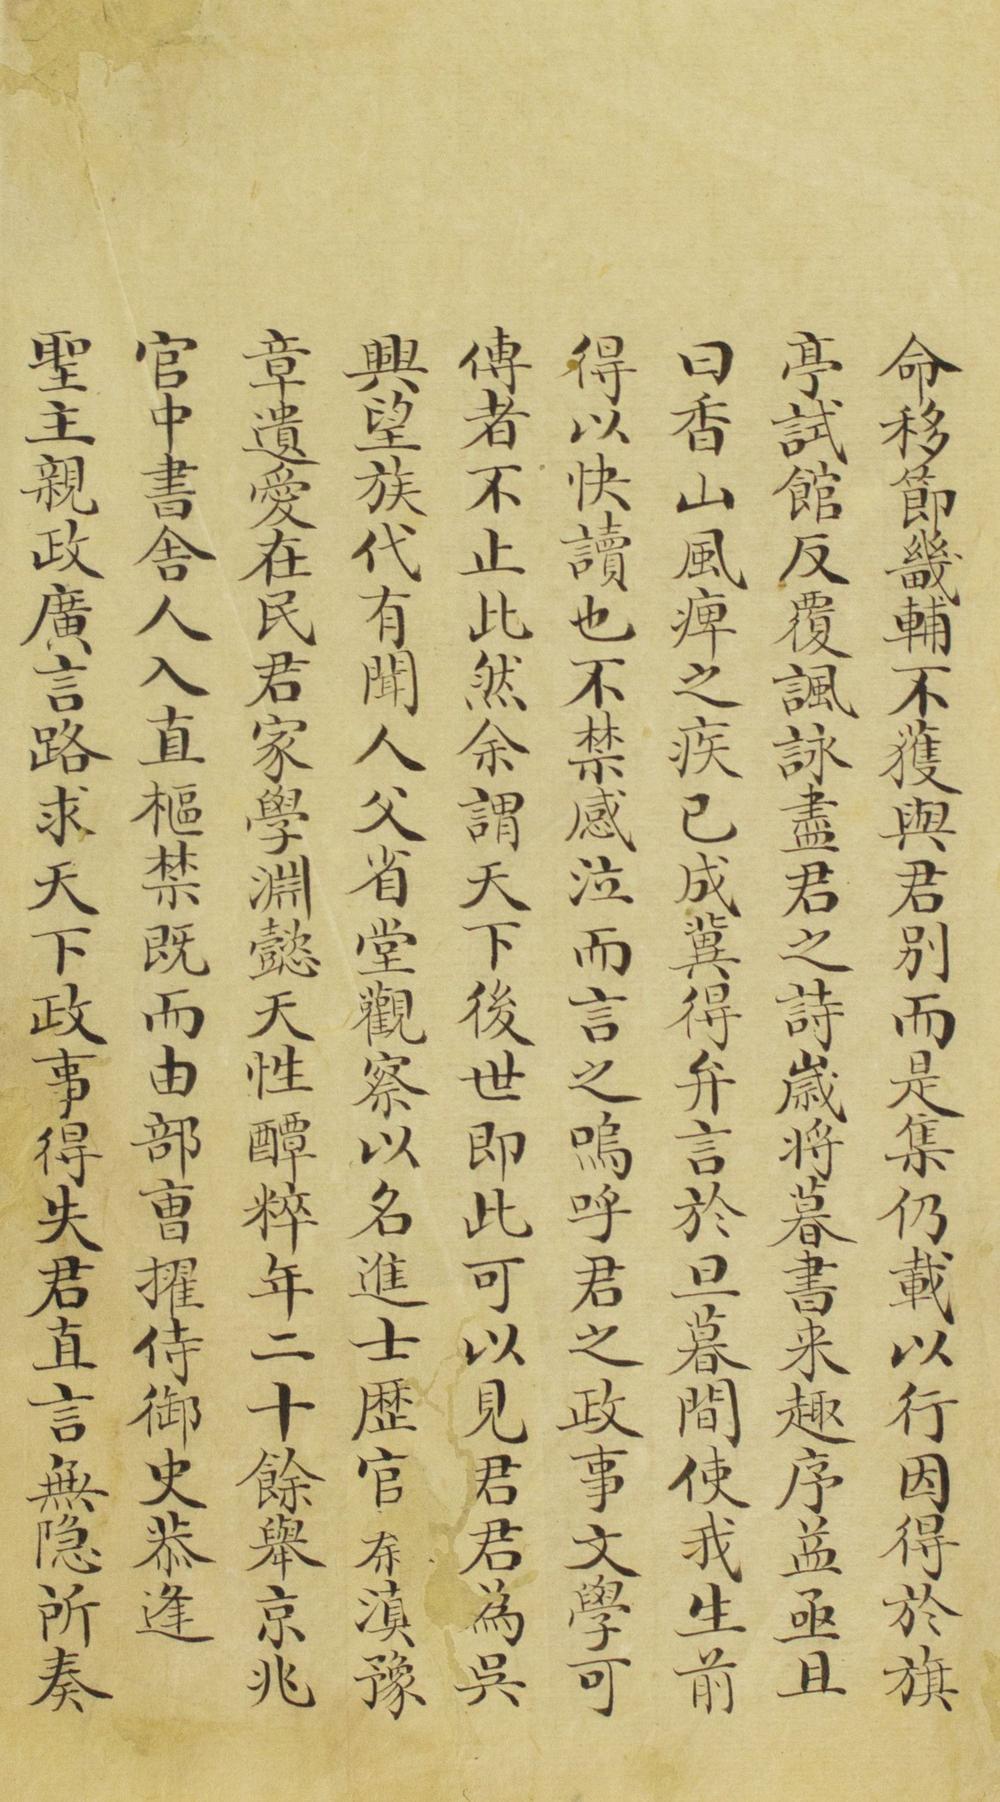 命移節畿輔不獲與君别而是集仍載以行因得於旗
亭試館反覆諷詠盡君之詩歲将暮書来趣序益亟且
曰香山風痺之疾已成冀得弁言於旦暮間使我生前
得以快讀也不禁感泣而言之嗚呼君之政事文學可
傳者不止此然余謂天下後世即此可以見君君為吳
興望族代有聞人父省堂觀察以名進士歴官滇豫
章遺愛在民君家學淵懿天性醰粹年二十餘舉京兆
官中書舍人入直樞禁既而由部曹擢侍御史恭逢
聖主親政廣言路求天下政事得失君直言無隐所奏